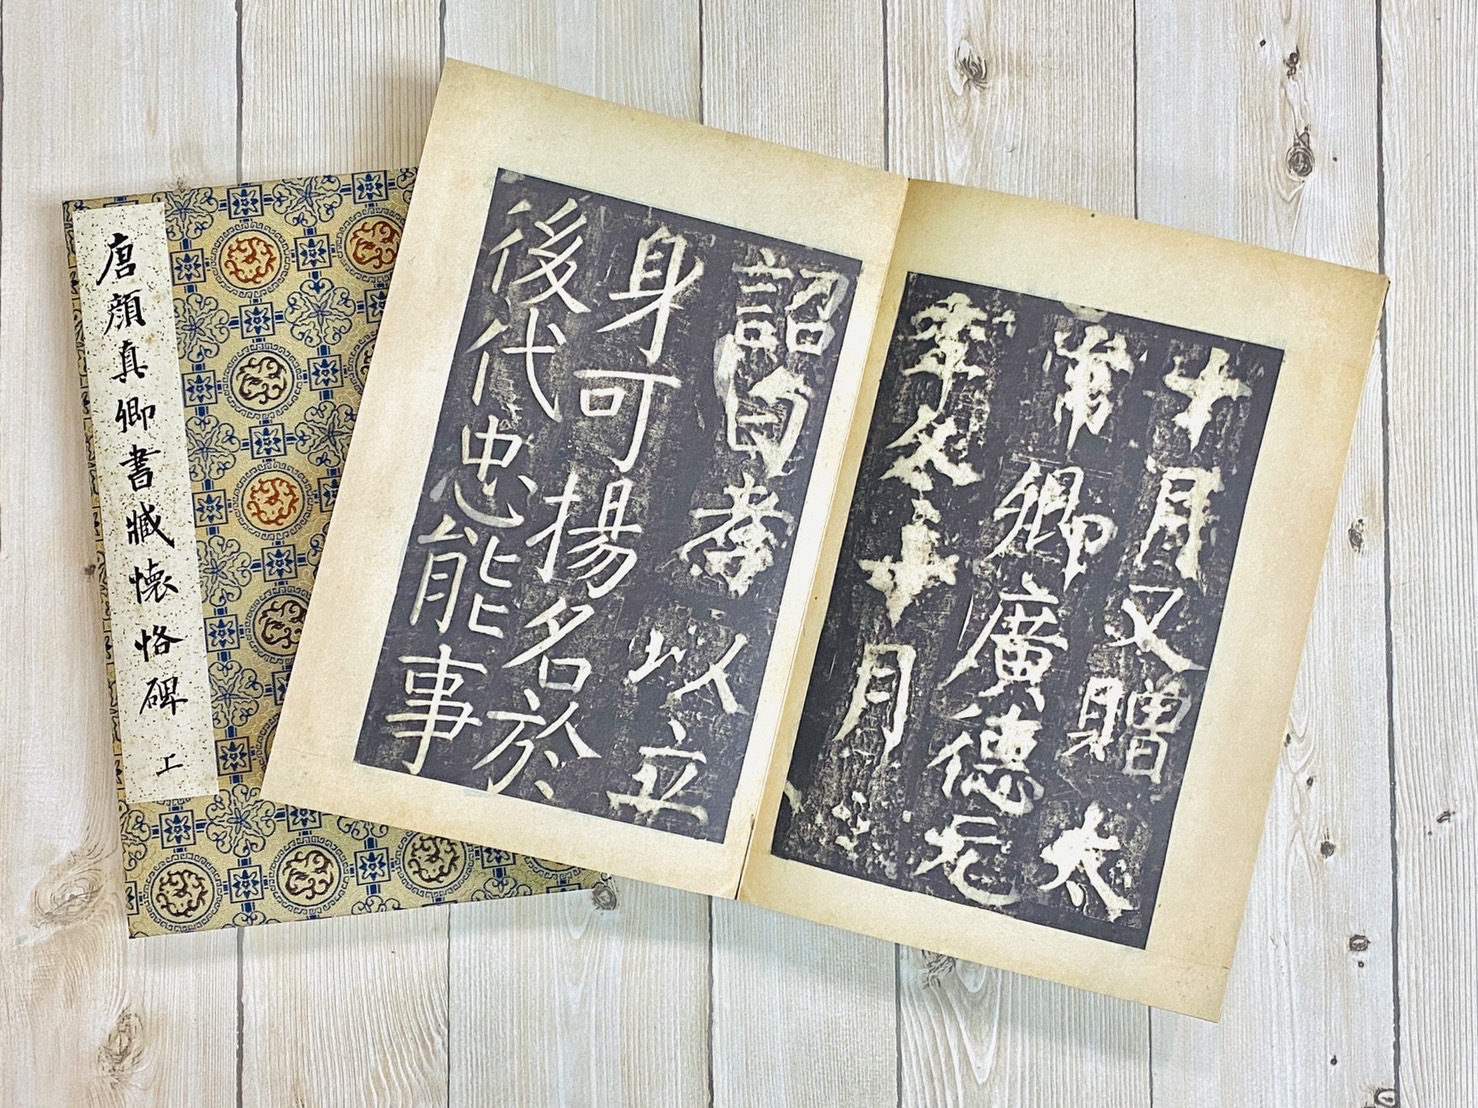 唐顔真卿書臧懷恪碑 上
十月又贈太
常卿廣德元
年冬十月
詔曰孝以立
身可揚名於
後代忠能事